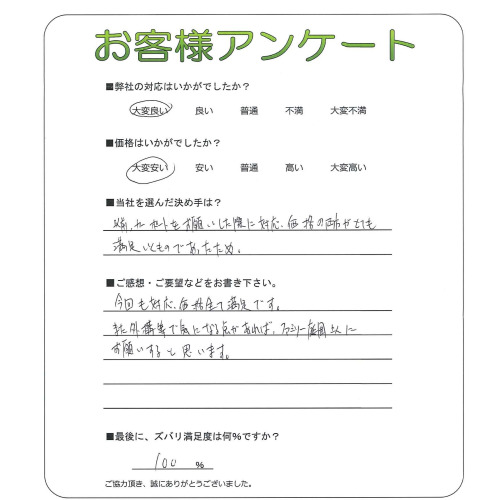 お客様アンケート
■弊社の対応はいかがでしたか？
大変良い 良い 普通 不満 大変不満
■価格はいかがでしたか？
大変安い 安い 普通 高い 大変高い
■当社を選んだ決め手は？
以前、カーポートを お願いした際に対応、価格の両方がとても
満足いくものであったため。
■ご感想・ご要望などをお書き下さい。
今回も対応、価格全て満足です。
又、外構等で気になる点があれば、ファミリー庭園さんに
お願いすると思います。
■最後に、ズバリ満足度は何％ですか？
100 ％
ご協力頂き、誠にありがとうございました。